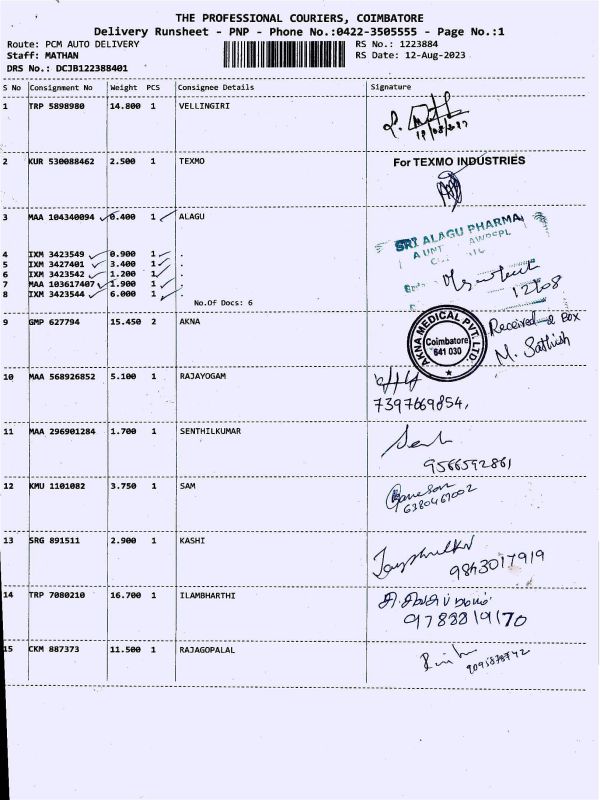 THE PROFESSIONAL COURIERS, COIMBATORE
Delivery Runsheet - PNP - Phone No.:0422-3505555 - Page No.:1
Route: PCM AUTO DELIVERY RS No.: 1223884
Staff: MATHAN RS Date: 12-Aug-2023
DRS No.: DCJB122388401
S No Consignment No Weight PCS Consignee Details Signature
1 TRP 5898980 14.800 1 VELLINGIRI
2 KUR 530088462 2.500 1 TEXMO For TEXMO INDUSTRIES
3 MAA 104340094 0.400 1 ALAGU
SRI ALAGU PHARMA
4 IXM 3423549 0.900 1 .
5 IXM 3427401 3.400 1 .
6 IXM 3423542 1.200 1 .
7 MAA 103617407 1.900 1 .
8 IXM 3423544 6.000 1 .
12/08
No.Of Docs: 6
9 GMP 627794 15.450 2 AKNA
AKNA MEDICAL PVT. LTD.
Coimbatore
641 030
Received 2 Box
M. Sathish
10 MAA 568926852 5.100 1 RAJAYOGAM
7397669854,
11 MAA 296901284 1.700 1 SENTHILKUMAR
9566592861
12 KMU 1101082 3.750 1 SAM
6380467002
13 SRG 891511 2.900 1 KASHI
9843017919
14 TRP 7080210 16.700 1 ILAMBHARTHI
9788819170
15 CKM 887373 11.500 1 RAJAGOPALAL